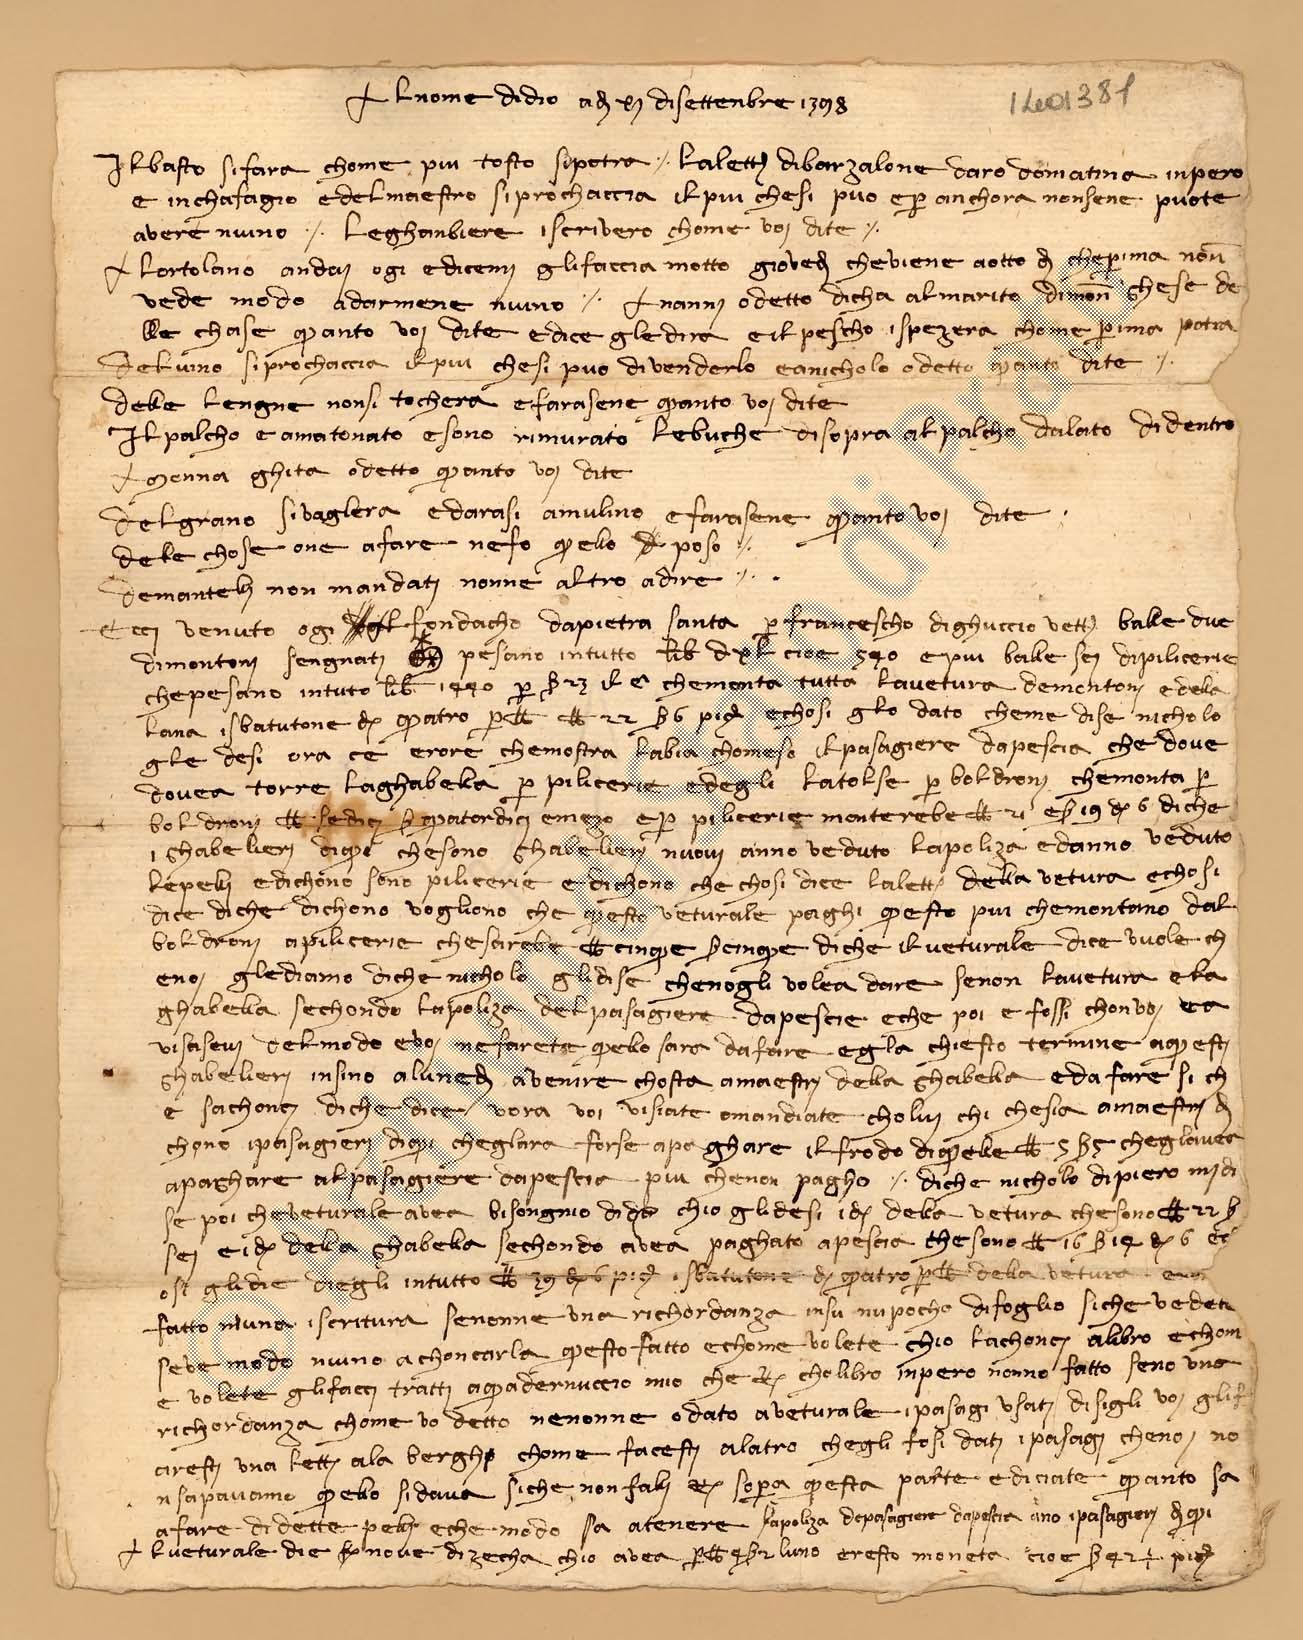 + Al nome di Dio adì XI di settenbre 1398
1401381
Il basto si farà chome più tosto si potrà. La lettera di Barzalone darò domatina inpero
e in Chafagio e del maestro si prochaccia il più che si può e per anchora non sene puote
avere niuno. Leghanbiere iscriverò chome voi dite.
A l'ortolano andai ogi e dicemi gli faccia motto giovedì che viene a otto dì che prima non
vede modo a darmene niuno. A Nanni ò detto dicha al marito di mona Ghese de
lle chase quanto voi dite e dice gle dirà e il pescho ispezerà chome prima potrà
del vino si prochaccia il più che si può di venderlo e a Nicholò ò detto quanto dite
delle lengne non si tocherà e farasene quanto voi dite
Il palcho è amatonato e sono rimurato le buche di sopra al palcho da lato di dentro
A monna Ghita ò detto quanto voi dite
del grano si vaglerà e darasi a mulino e farasene quanto voi dite
dele chose ò ne a fare ne fo quello posso
de mantelli non mandati nonn'è altro a dire
Ècci venuto ogi del fondacho da Pietra Santa per Francescho di Ghuccio vetturale balle due
di montoni sengnati pesano in tutto lib. DXL cioè 540 e più balle sei di pilicerie
che pesano in tuto lib. 1440 per s. 23 il c. che monta tutta la vetura de montoni e dela
lana isbatutone d. quatro per lb. lb. 22 s. 6 pi. e chosì glò dato che me dise Nicholò
gle desi ora c'è erore che mostra l'abia chomeso il pasagiere da Pescia che dove
dovea torre la ghabella per pilicerie ed egli la tolse per boldroni che monta per
boldroni lb. sedici s. quatordici e mezo e per pilicerie monterebe lb. 21 e s. 19 d. 6 di che
i ghabelieri di qui che sono ghabelieri nuovi ànno veduto la poliza ed ànno veduto
le pelli e dichono sono pilicerie e dichono che chosì dice la lettera della vetura e chosì
dice di che dichono vogliono che questo veturale paghi questo più che montano dal
boldroni a pilicerie che sarebe lb. cinque s. cinque di che il veturale dice vuole ch
e noi glediamo di che Nicholò gli dise che no gli volea dare se non la vetura e la
ghabella sechondo la poliza del pasagiere da Pescie e che poi e fossi chon voi e a
visasevi del modo e voi ne farete quello sarà da fare e gl'à chiesto termine a questi
ghabelieri insino a lunedì a venire chosta a maestri della ghabella e da fare si ch
e s'achonci di che dice vorà voi vi siate o mandiate cholui chi che sia a maestri di
chono i pasagieri di qui che glarà forse a paghare il frodo di quelle lb. 5 s. 5 che gl'avea
a paghare al pasagiere da Pescia più che non paghò. di che Nicholò di Piero mi di
se poi che veturale avea bisongnio di d. ch'io gli desi i d. della vetura che sono lb. 22 s.
sei e i d. della ghabella sechondo avea paghato a Pescia che sono lb. 16 s. 14 d. 6 e ch
osì gli die diegli in tutto lb. 39 d. 6 pi. isbatutone d. quatro per lb. della vetura
fatto niuna iscritura se nonne una richordanza in su nu pocho di foglio sì che vedete
se v'è modo niuno a chonciarla questo fatto e chome volete ch'io l'achonci a libro e chom
e volete gli facci tratti a quadernuccio mio che cho libro inperò nonn ò fatto se no una
richordanza chome v'ò detto ne nonne ò dato a veturale i pasagi usati disigli voi gli f
aresti una lettera a l'albergho chome facesti a l'altro ch'egli fosi dati i pasagi che noi no
n sapavamo quello si dava siche non falli sopra questa parte e diciate quanto s'à
a fare di dette pelli e che modo s'à a tenere la poliza de pasagiere da Pescia ànno i pasagieri di qui
A l veturale die nove di zecha ch'io avea per lb. 4 s. 2 l'uno e resto moneta cioè s. 42 ½ pi.